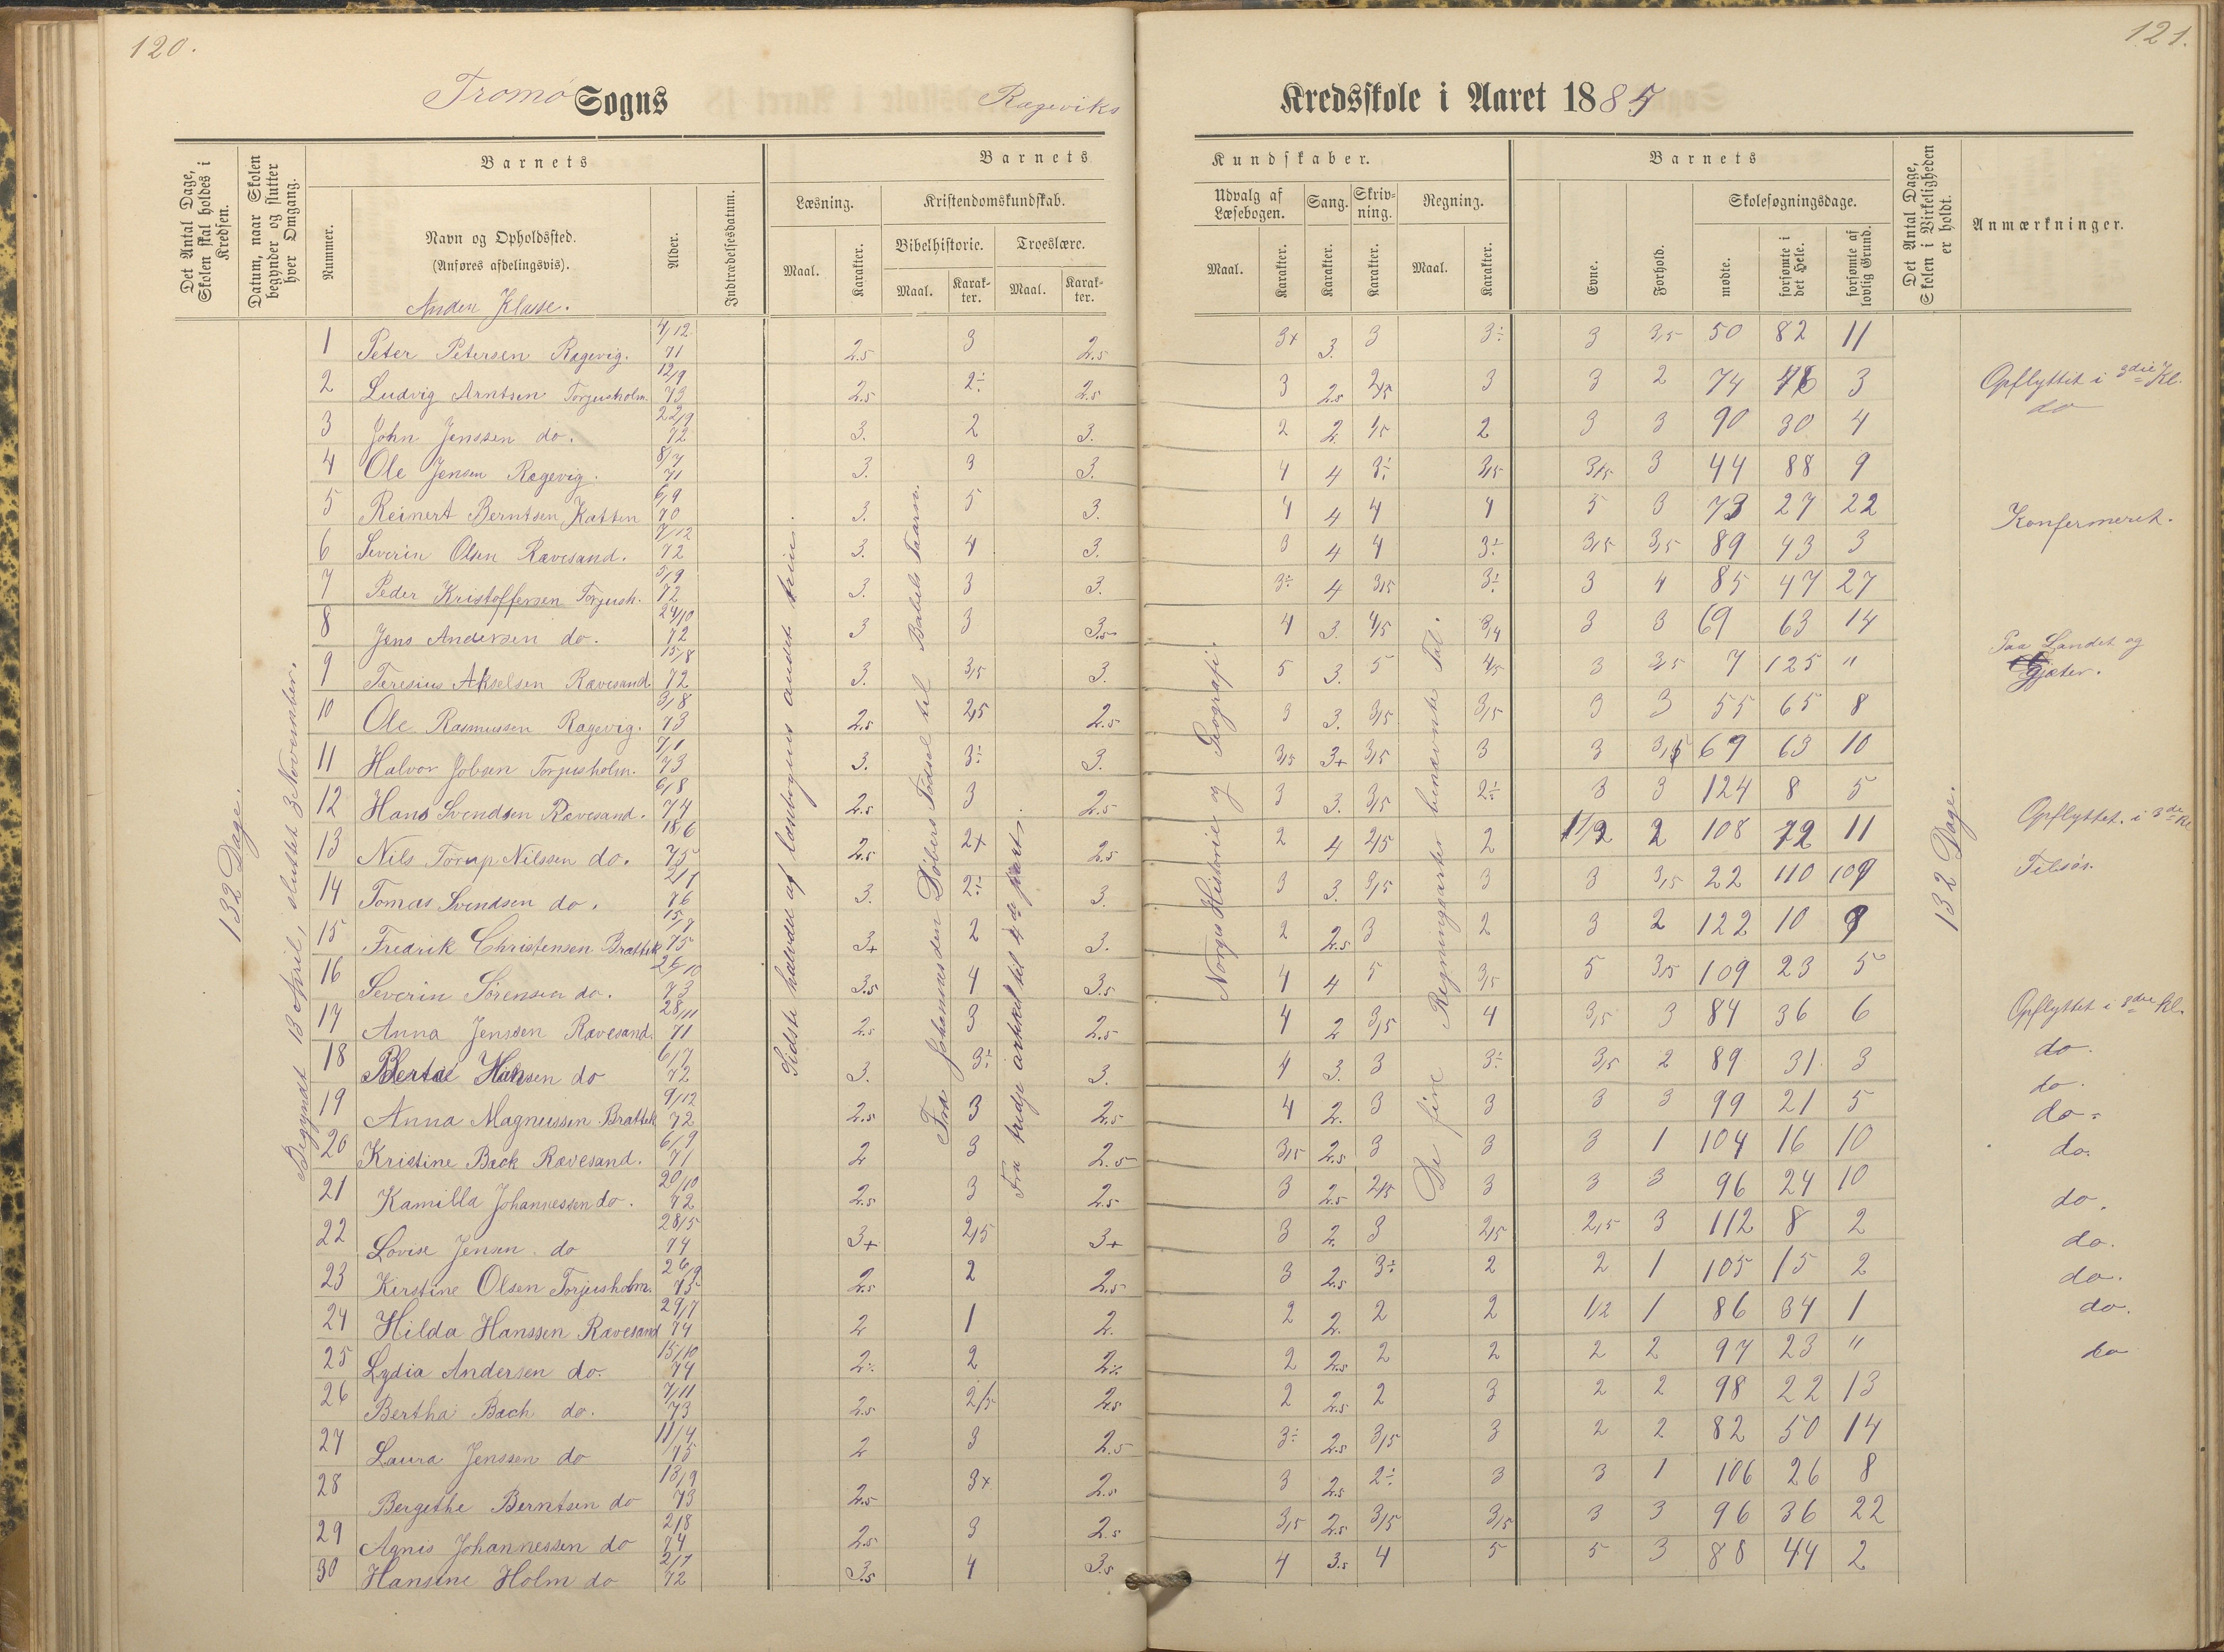 120.
121.
Tromø Sogns Rægeviks Kredsskole i Aaret 1885
Det Antal Dage, Skolen skal holdes i Kredsen.
Datum, naar Skolen begynder og slutter hver Omgang.
Nummer.
Barnets
Navn og Opholdssted.
(Anføres afdelingsvis).
Anden Klasse.
Alder.
Indtrædelsesdatum.
Barnets Kundskaber.
Læsning.
Maal.
Karakter.
Kristendomskundskab.
Bibelhistorie.
Maal.
Karakter.
Troeslære.
Maal.
Karakter.
Udvalg af Læsebogen.
Maal.
Karakter.
Sang.
Karakter.
Skrivning.
Karakter.
Regning.
Maal.
Karakter.
Barnets
Evne.
Forhold.
Skolesøgningsdage.
mødte.
forsømte i det Hele.
forsømte af lovlig Grund.
Det Antal Dage, Skolen i Virkeligheden er holdt.
Anmærkninger.
132 Dage.
Begyndt 13 April, sluttet 3 November.
Sidste halvdel af læsebogens andet trin.
Fra Johannes den Døbers Fødsel til Babels Taarn.
Fra tredje artikel til 4de part.
Norges Historie og Geografi.
De fire Regningsarter benævnte Tal.
132 Dage.
1 Peter Petersen Rægevig. 4/12 71 2.5 3 2.5 3+ 3. 3 3÷ 3 3,5 50 82 11
2 Ludvig Arntsen Torjusholm. 12/9 73 2.5 2÷ 2.5 3 2.5 2,5 3 3 2 74 3 Opflyttet i 3die Kl.
3 John Jenssen do. 22/9 72 3. 2 3. 2 2. 1,5 2 3 3 90 30 4 do
4 Ole Jensen Rægevig. 8/7 71 3. 3 3. 4 4 3÷ 3,5 3,5 3 44 88 9
5 Reinert Berntsen Katten 6/9 70 3. 5 3. 4 4 4 4 5 3 73 27 22 Konfermeret.
6 Severin Olsen Rævesand. 7/12 72 3. 4 3. 3 4 4 3÷ 3,5 3,5 89 43 3
7 Peder Kristoffersen Torjush. 5/9 72 3. 3 3. 3÷ 4 3,5 3÷ 3 4 85 47 27
8 Jens Andersen do. 24/10 72 3 3 3.5 4 3. 4,5 3/4 3 3 69 63 14
9 Teresius Akselsen Rævesand 15/8 72 3. 3,5 3. 5 3. 5 4,5 3 3,5 7 125 " Paa Landet og Gjæter.
10 Ole Rasmussen Rægevig. 3/8 73 2.5 2,5 2.5 3 3. 3,5 3,5 3 3 55 65 8
11 Halvor Jobsen Torjusholm. 7/1 73 3. 3÷ 3. 3,5 3+ 3,5 3 3 3,5 69 63 10
12 Hans Svendsen Rævesand. 6/8 74 2.5 3 2.5 3 3. 3,5 2÷ 3 3 124 8 5
13 Nils Torup Nilssen do. 18/6 75 2.5 2+ 2.5 2 4 2,5 2 1/2 2 108 11 Opflyttet. i 3de Kl
14 Tomas Svendsen do. 76 3. 2÷ 3. 3 3. 3,5 3 3 3,5 22 110 109 Tilsøs.
15 Fredrik Christensen Brattek 15/7 75 3+ 2 3. 2 2.5 3 2 3 2 122 10
16 Severin Sørensen do. 26/10 73 3.5 4 3.5 4 4 5 3,5 5 3,5 109 23 5
17 Anna Jenssen Rævesand. 28/11 71 2.5 3 2.5 4 2 3,5 4 3,5 3 84 36 6 Opflyttet i 3die Kl.
18 Berta Hansen do 6/7 72 3. 3÷ 3. 4 3. 3 3÷ 3,5 2 89 31 3 do.
19 Anna Magnussen Brattek 9/12 72 2.5 3 2.5 4 2. 3 3 3 3 99 21 5 do.
20 Kristine Back Rævesand. 6/9 71 2 3 2.5 3,5 2.5 3 3 3 1 104 16 10 do.
21 Kamilla Johannessen do. 20/10 72 2.5 3 2.5 3 2.5 2,5 3 3 3 96 24 10 do.
22 Lovise Jensen do 28/5 74 3+ 2,5 3+ 3 2. 3 2,5 2,5 3 112 8 2 do.
23 Kirstine Olsen Torjusholm. 26/9 73 2.5 2 2.5 3 2.5 3÷ 2 2 1 105 15 2 do.
24 Hilda Hanssen Rævesand 29/7 74 2 1 2. 2 2. 2 2 1/2 1 86 34 1 do.
25 Lydia Andersen do. 15/10 74 2÷ 2 2÷ 2 2.5 2 2 2 2 97 23 " do.
26 Bertha Bach do. 7/11 73 2.5 2,5 2.5 2 2.5 2 3 2 2 98 22 13 do
27 Laura Jenssen do 11/4 75 2 3 2.5 3÷ 2.5 3,5 3 2 2 82 50 14
28 Bergethe Berntsen do 13/9 73 2.5 3+ 2.5 3 2.5 2÷ 3 3 1 106 26 8
29 Agnis Johannessen do 2/8 74 2.5 3 2.5 3,5 2.5 3,5 3,5 3 3 96 36 22
30 Hansine Holm do 2/7 72 3.5 4 3.5 4 3.5 4 5 5 3 88 44 2